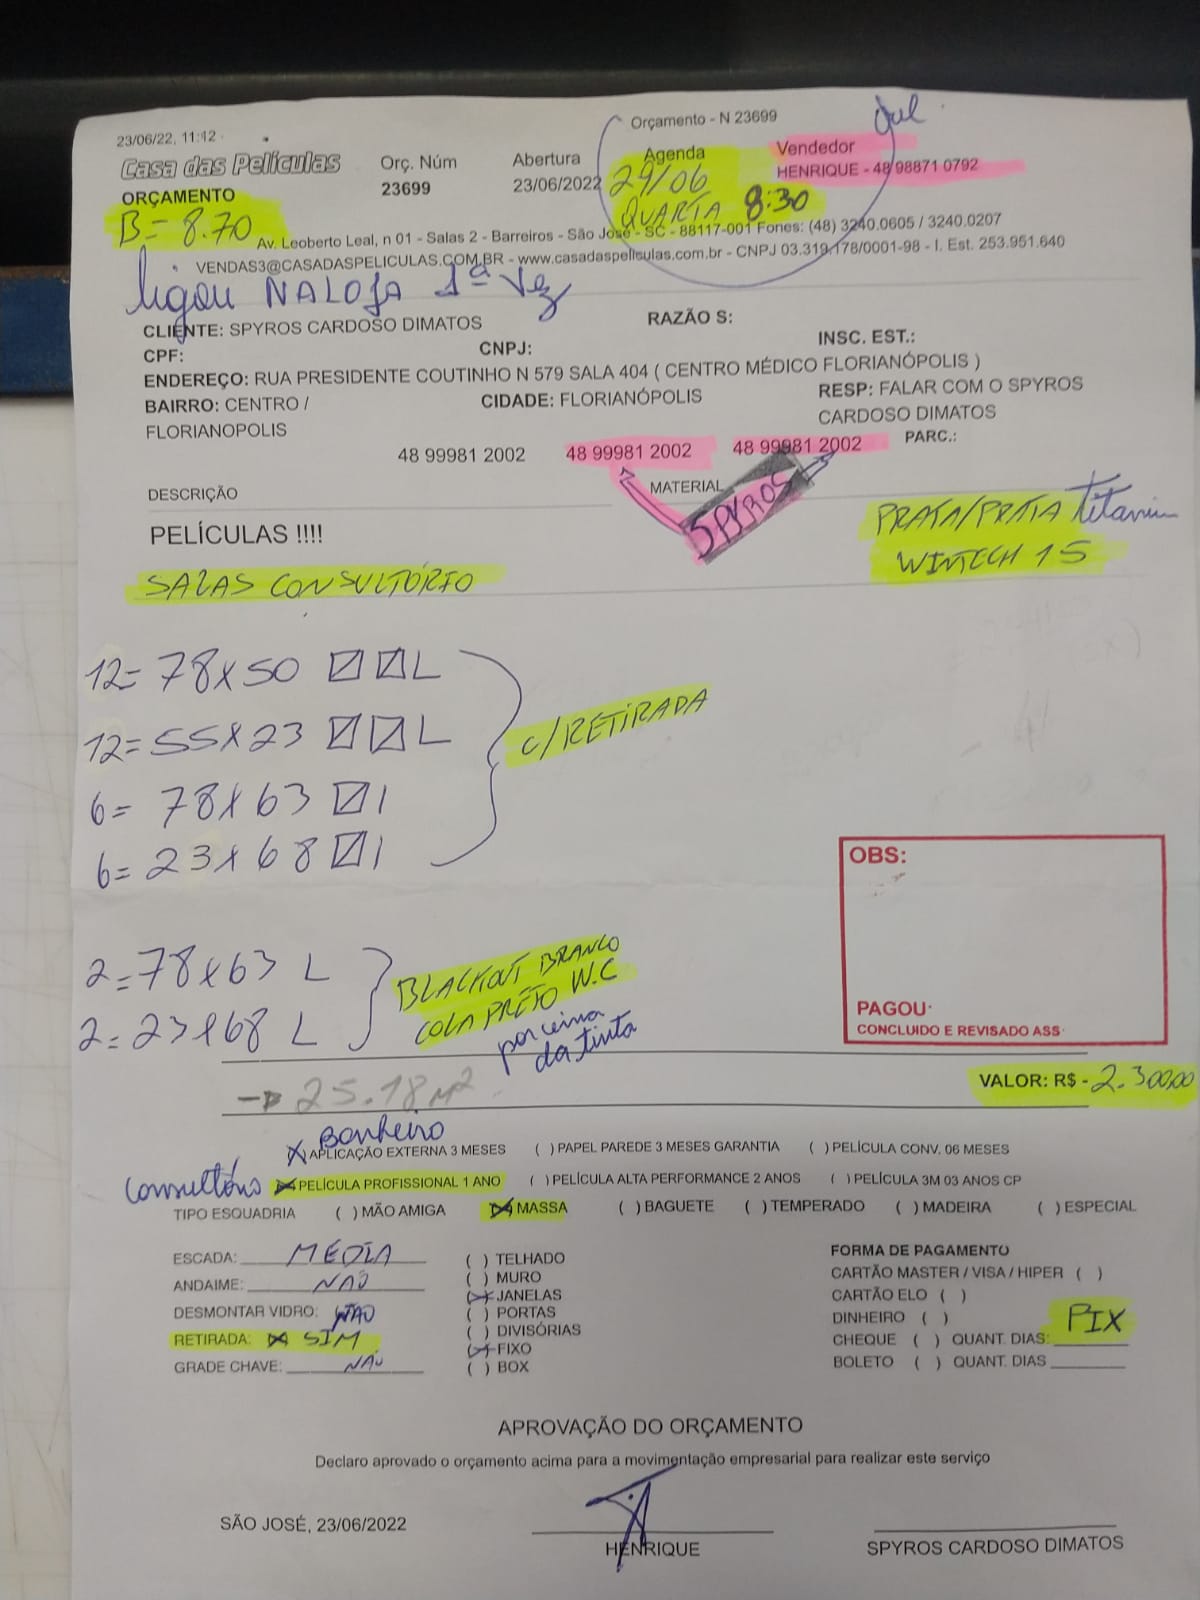 23/06/22, 11:12
Orçamento - N 23699
Casa das Películas
ORÇAMENTO
Orç. Núm
23699
Abertura
23/06/2022
Agenda
29/06
QUARTA 8:30
Vendedor
HENRIQUE - 48 98871 0792
B= 8.70
Av. Leoberto Leal, n 01 - Salas 2 - Barreiros - São José - SC - 88117-001 Fones: (48) 3240.0605 / 3240.0207
VENDAS3@CASADASPELICULAS.COM.BR - www.casadaspeliculas.com.br - CNPJ 03.319.178/0001-98 - I. Est. 253.951.640
ligou NA LOJA 1ª vez
CLIENTE: SPYROS CARDOSO DIMATOS
RAZÃO S:
CPF:
CNPJ:
INSC. EST.:
ENDEREÇO: RUA PRESIDENTE COUTINHO N 579 SALA 404 ( CENTRO MÉDICO FLORIANÓPOLIS )
BAIRRO: CENTRO / FLORIANOPOLIS
CIDADE: FLORIANÓPOLIS
RESP: FALAR COM O SPYROS CARDOSO DIMATOS
48 99981 2002
48 99981 2002
48 99981 2002
PARC.:
DESCRIÇÃO
MATERIAL
SPYROS
PELÍCULAS !!!!
PRATA/PRATA titanium
WINTECH 15
SALAS CONSULTÓRIO
12= 78x50 L
12= 55x23 L
6= 78x63 1
6= 23x68 1
C/RETIRADA
2=78x63 L
2=23x68 L
BLACKOUT BRANCO
COLA PRETO W.C
por cima
da tinta
OBS:
PAGOU
CONCLUIDO E REVISADO ASS
25.18 m²
VALOR: R$ - 2.300,00
Banheiro
(X) APLICAÇÃO EXTERNA 3 MESES ( ) PAPEL PAREDE 3 MESES GARANTIA ( ) PELÍCULA CONV. 06 MESES
Consultório (X) PELÍCULA PROFISSIONAL 1 ANO ( ) PELÍCULA ALTA PERFORMANCE 2 ANOS ( ) PELÍCULA 3M 03 ANOS CP
TIPO ESQUADRIA ( ) MÃO AMIGA (X) MASSA ( ) BAGUETE ( ) TEMPERADO ( ) MADEIRA ( ) ESPECIAL
ESCADA: MEDIA
ANDAIME: NAO
DESMONTAR VIDRO: NÃO
RETIRADA: X SIM
GRADE CHAVE: NÃO
( ) TELHADO
( ) MURO
(X) JANELAS
( ) PORTAS
( ) DIVISÓRIAS
(X) FIXO
( ) BOX
FORMA DE PAGAMENTO
CARTÃO MASTER / VISA / HIPER ( )
CARTÃO ELO ( )
DINHEIRO ( )
CHEQUE ( ) QUANT. DIAS:
PIX
BOLETO ( ) QUANT. DIAS
APROVAÇÃO DO ORÇAMENTO
Declaro aprovado o orçamento acima para a movimentação empresarial para realizar este serviço
SÃO JOSÉ, 23/06/2022
HENRIQUE
SPYROS CARDOSO DIMATOS